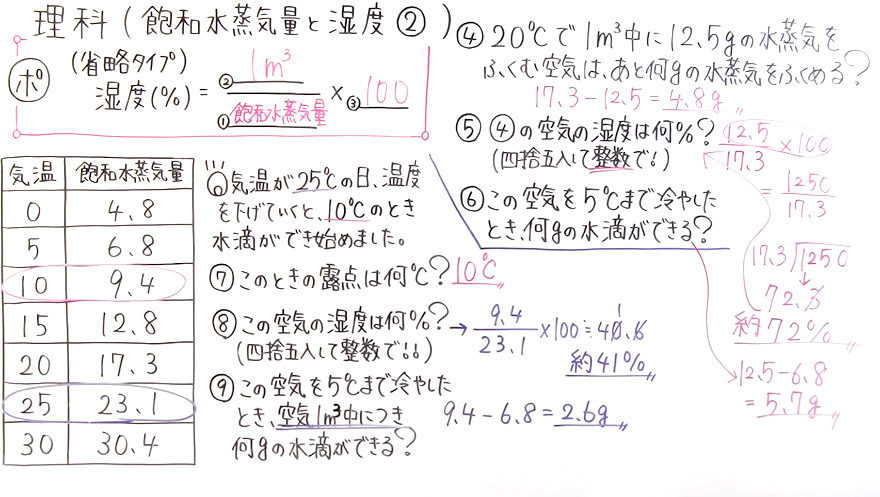 理科(飽和水蒸気量と湿度②)
ポ (省略タイプ)
湿度(%) = ②1m³ / ①飽和水蒸気量 × ③100
気温 飽和水蒸気量
0 4.8
5 6.8
10 9.4
15 12.8
20 17.3
25 23.1
30 30.4
④20℃で1m³中に12.5gの水蒸気を
ふくむ空気は、あと何gの水蒸気をふくめる?
17.3-12.5=4.8g
⑤④の空気の湿度は何%?
(四捨五入して整数で!)
12.5/17.3 ×100
= 1250/17.3
17.3)1250
72.3
約72%
⑥この空気を5℃まで冷やした
とき、何gの水滴ができる?
12.5-6.8
=5.7g
気温が25℃の日、温度
を下げていくと、10℃のとき
水滴ができ始めました。
⑦このときの露点は何℃? 10℃
⑧この空気の湿度は何%?
(四捨五入して整数で!!)
→ 9.4/23.1 ×100≒40.6
1
約41%
⑨この空気を5℃まで冷やした
とき、空気1m³中につき
何gの水滴ができる?
9.4-6.8=2.6g